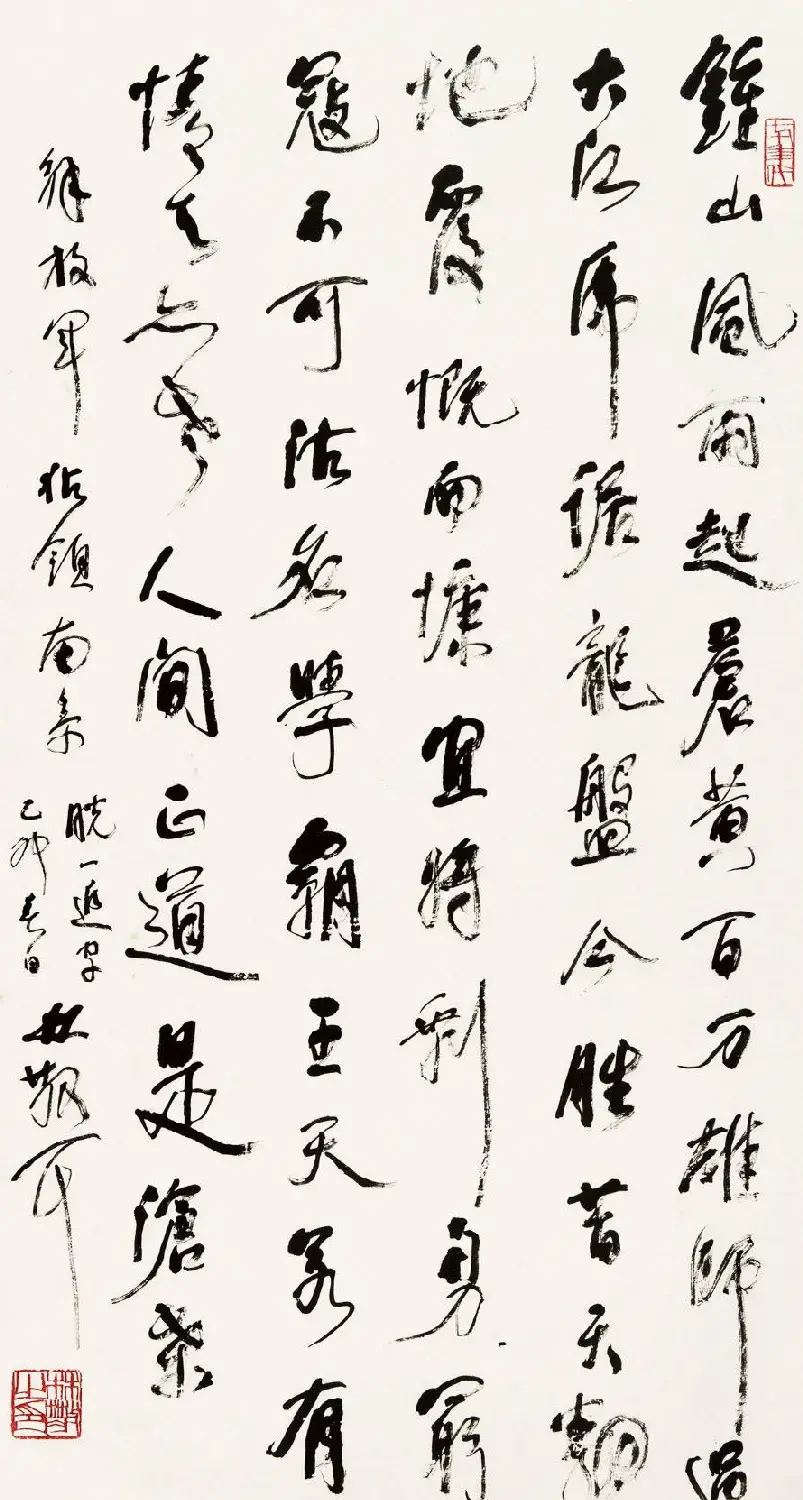 鍾山風雨起蒼黄百万雄師過
大江虎踞龍盤今胜昔天翻
地覆慨而慷宜將剩勇窮
寇不可沽名學霸王天若有
情天亦老人間正道是滄桑
解放軍佔領南京
脱一追字
乙卯春日
林散耳
林散之印